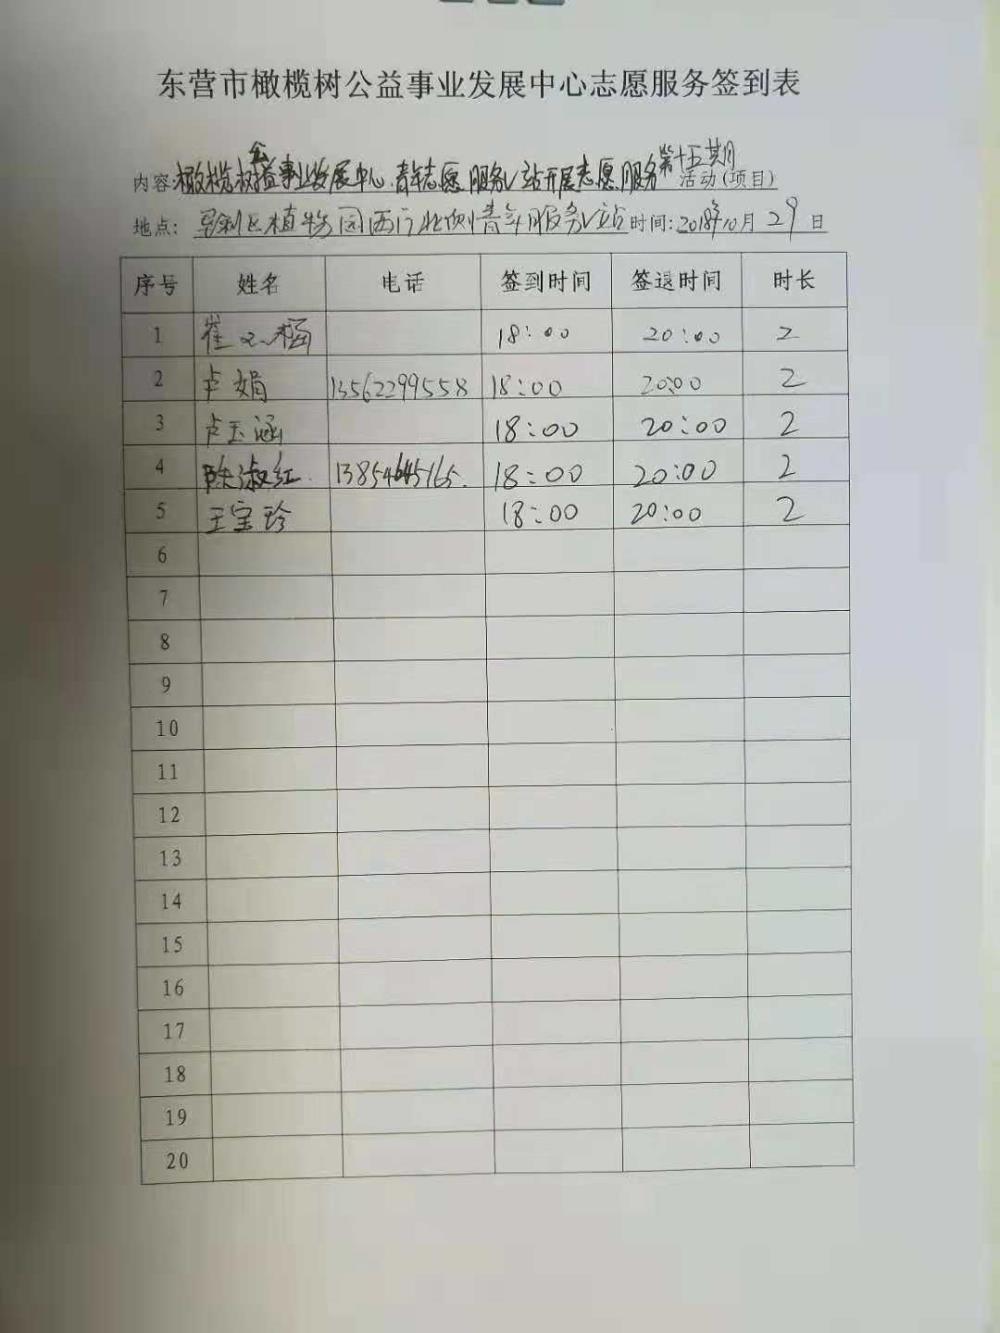 东营市橄榄树公益事业发展中心志愿服务签到表
内容:橄榄树公益事业发展中心青年志愿服务V站开展志愿服务第十五期活动(项目)
地点:垦利区植物园西门北侧青年服务V站时间:2018年10月29日
序号 姓名 电话 签到时间 签退时间 时长
1 崔 涵 18:00 20:00 2
2 卢娟 13562299558 18:00 20:00 2
3 卢玉涵 18:00 20:00 2
4 陈淑红 13854645165. 18:00 20:00 2
5 王宝珍 18:00 20:00 2
6
7
8
9
10
11
12
13
14
15
16
17
18
19
20